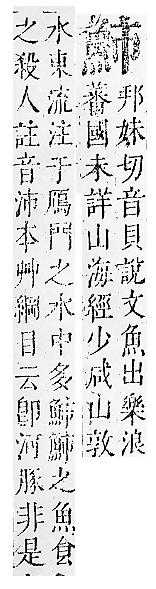 邦妹切音貝說文魚出樂浪
蕃國未詳山海經少咸山敦
水東流注于鴈門之水中多䰽䰽之魚食
之殺人註音沛本艸綱目云卽河豚非是